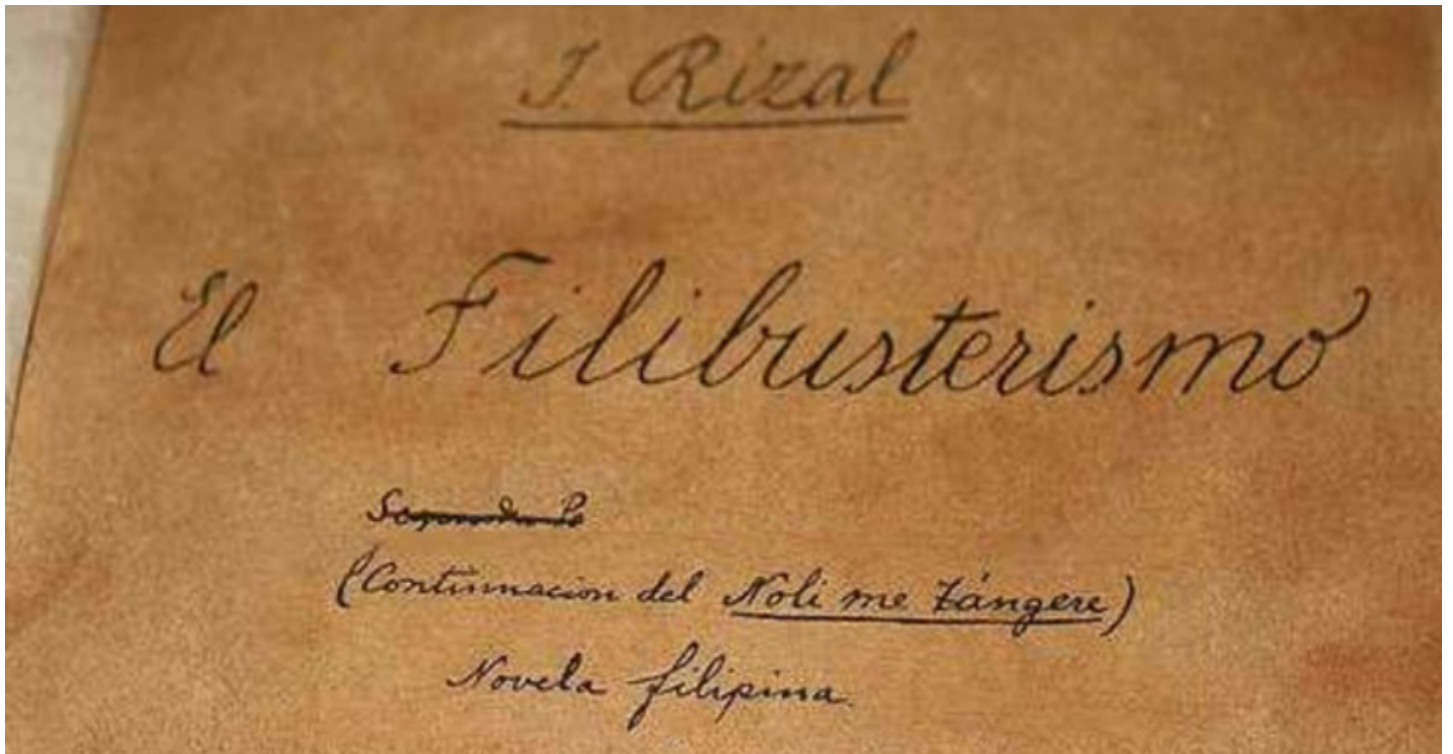 J. Rizal
El Filibusterismo
(Continuacion del Noli me tángere)
Novela filipina